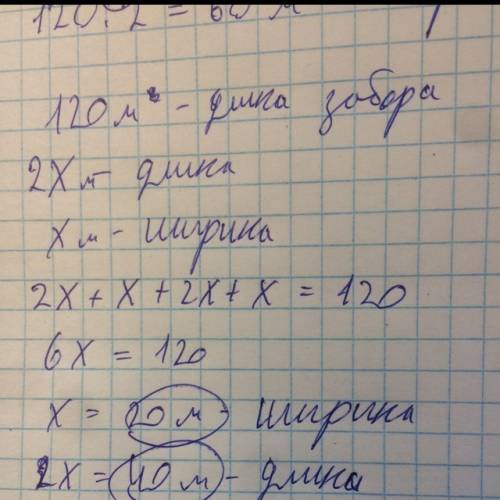 120:2 = 60 м
120 м - длина забора
2X м - длина
X м - ширина
2X + X + 2X + X = 120
6X = 120
X = 20 м - ширина
2X = 40 м - длина